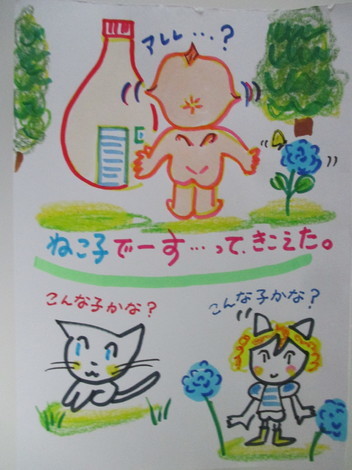 アレレ…?
ねこ子でーす…って、きこえた。
こんな子かな?
こんな子かな?